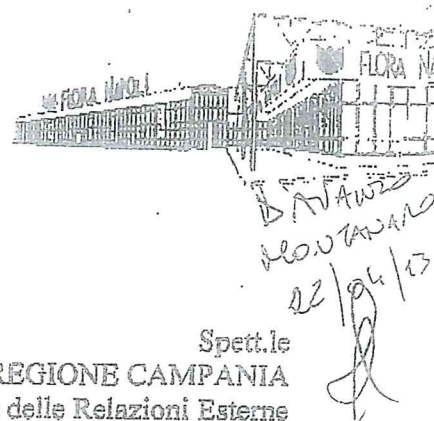 FLORA NAPOLI
FLORA NA
D'AVANZO
MONTANARO
22/04/13
Spett.le
REGIONE CAMPANIA
delle Relazioni Esterne